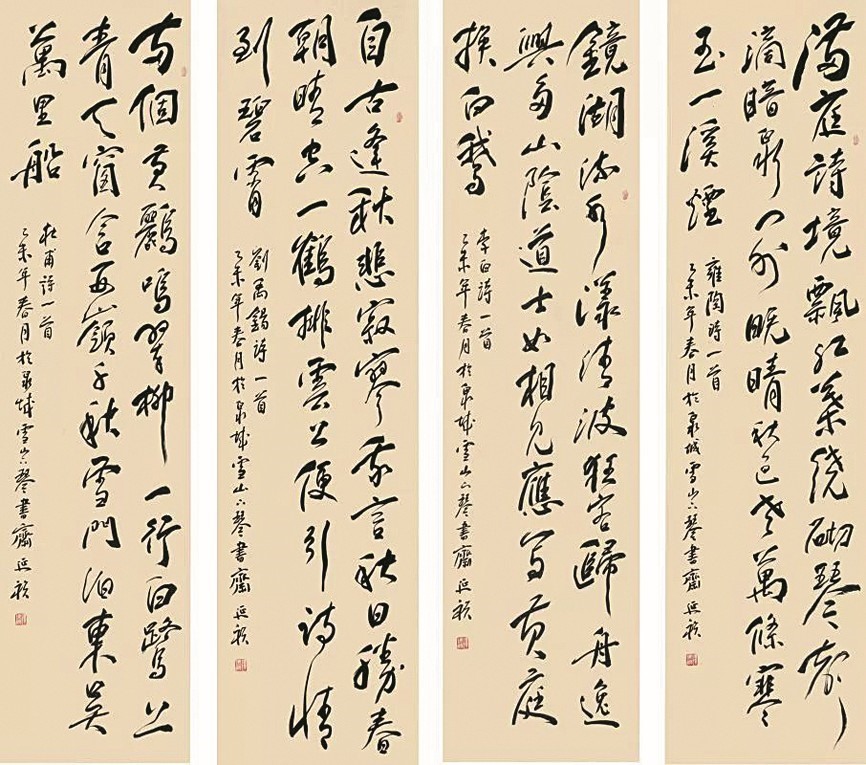 滿庭詩境飄紅葉繞砌琴聲
滴暗泉門外晚晴秋色老萬條寒
玉一溪煙
雍陶詩一首
乙未年春月於泉城雪山琴書齋延
鏡湖流水漾清波狂客歸舟逸
興多山陰道士如相見應寫黃庭
換白鵝
李白詩一首
乙未年春月於泉城雪山琴書齋延
自古逢秋悲寂寥我言秋日勝春
朝晴空一鶴排雲上便引詩情
到碧霄
劉禹錫詩一首
乙未年春月於泉城雪山琴書齋延
兩個黃鸝鳴翠柳一行白鷺上
青天窗含西嶺千秋雪門泊東吳
萬里船
杜甫詩一首
乙未年春月於泉城雪山琴書齋延